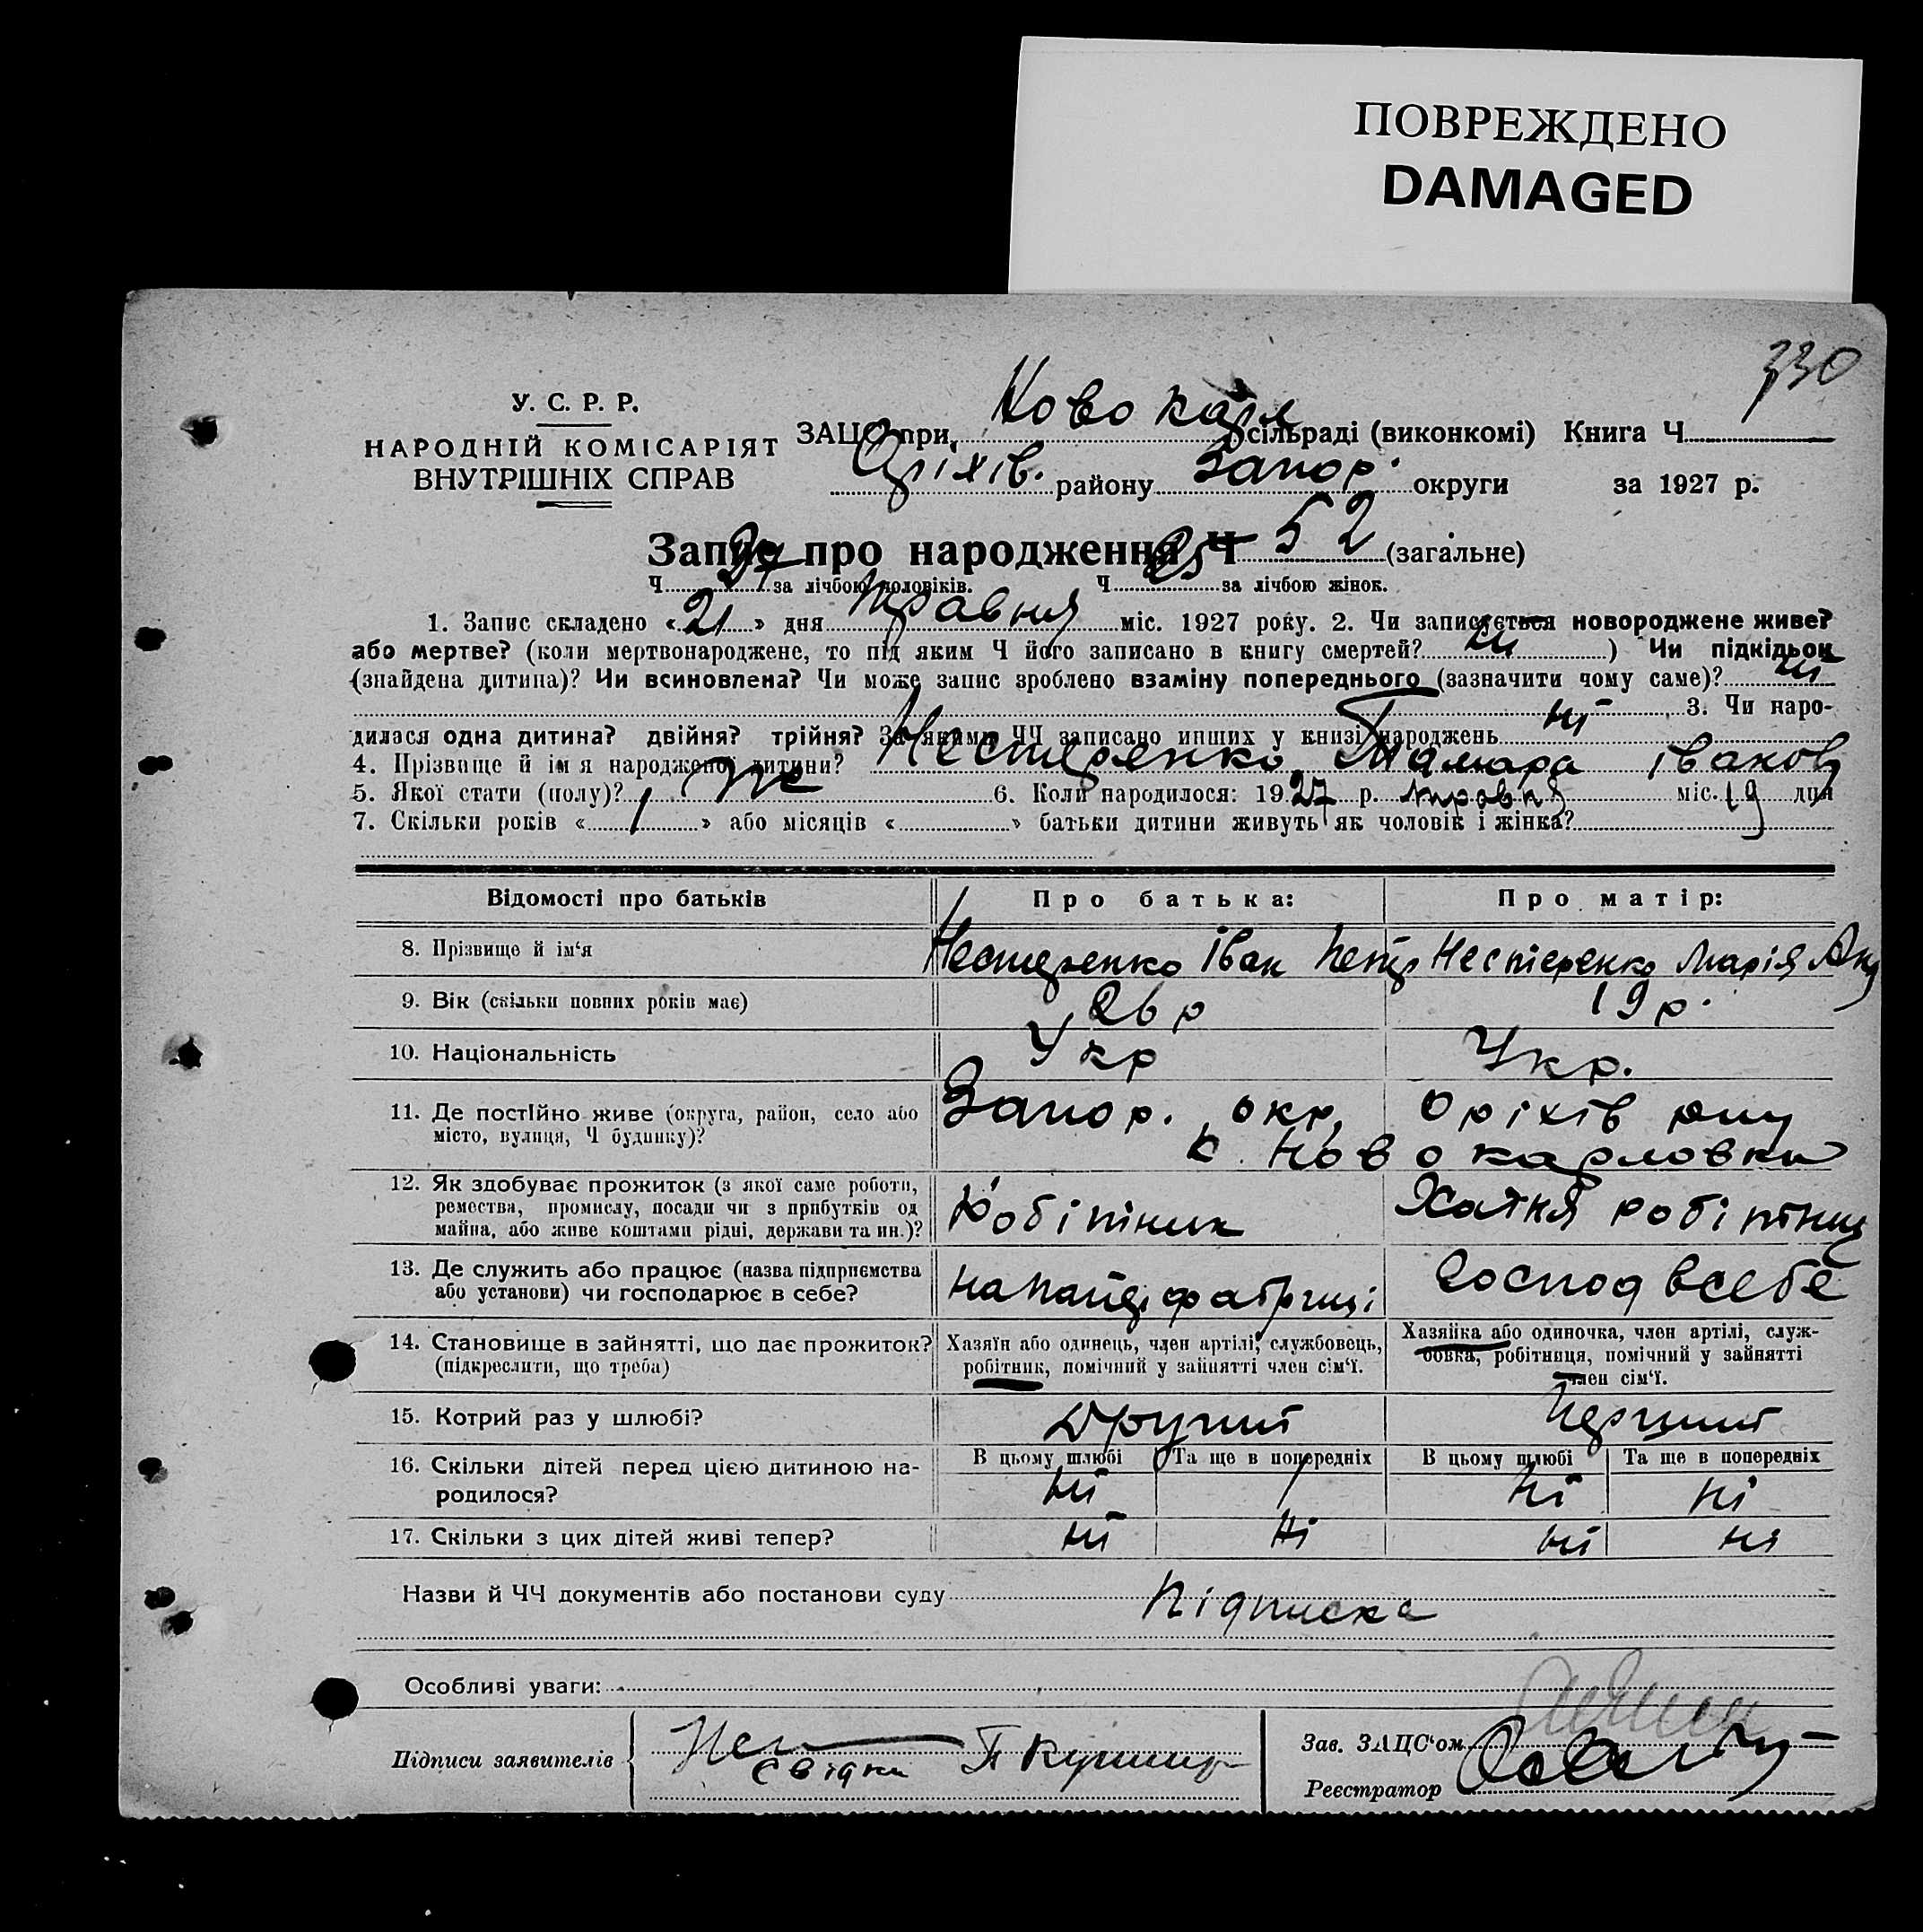 ПОВРЕЖДЕНО
DAMAGED
330
У. С. Р. Р.
НАРОДНІЙ КОМІСАРІЯТ
ВНУТРІШНІХ СПРАВ
ЗАЦС при Ново карл сільраді (виконкомі) Книга Ч.
Оріхів. району Запор. округи за 1927 р.
Запис про народження Ч 52 (загальне)
Ч. 27 за лічбою чоловіків. Ч. 25 за лічбою жінок.
1. Запис складено «21» дня травня міс. 1927 року. 2. Чи записується новороджене живе?
або мертве? (коли мертвонароджене, то під яким Ч його записано в книгу смертей? ні ) Чи підкідьок
(знайдена дитина)? Чи всиновлена? Чи може запис зроблено взаміну попереднього (зазначити чому саме)? ні
3. Чи наро-
дилася одна дитина? двійня? трійня? За якими ЧЧ записано инших у книзі народжень ні
4. Прізвище й ім я народженої дитини? Нестеренко Тамара Іванов
5. Якої стати (полу)? Же 6. Коли народилося: 1927 р. травня міс. 19 дня
7. Скільки років «1» або місяців « » батьки дитини живуть як чоловік і жінка?
Відомості про батьків Про батька: Про матір:
8. Прізвище й ім'я Нестеренко Іван Петр Нестеренко Марія Анд
9. Вік (скільки повних років має) 26 р 19 р.
10. Національність Укр Укр.
11. Де постІйно живе (округа, район, село або
місто, вулиця, Ч будинку)? Запор. окр, Оріхів рну
с. Ново карловка
12. Як здобуває прожиток (з якої саме роботи,
ремества, промислу, посади чи з прибутків од
майна, або живе коштами рідні, держави та ин.)? Робітник Хатня робітниц
13. Де служить або працює (назва підприємства
або установи) чи господарює в себе? на фабриці Господ в себе
14. Становище в зайнятті, що дає прожиток?
(підкреслити, що треба)
Хазяїн або одинець, член артілі, службовець,
робітник, помічний у зайнятті член сім'ї.
Хазяйка або одиночка, член артілі, служ-
бовка, робітниця, помічний у зайнятті
член сім'ї.
15. Котрий раз у шлюбі? Другий Перший
16. Скільки дітей перед цією дитиною на-
родилося?
В цьому шлюбі Та ще в попередніх В цьому шлюбі Та ще в попередніх
ні / ні ні
17. Скільки з цих дітей живі тепер? ні ні ні ні
Назви й ЧЧ документів або постанови суду Підписка
Особливі уваги:
Підписи заявителів
Свідки П Кушнир
Зав. ЗАЦС'ом
Реєстратор